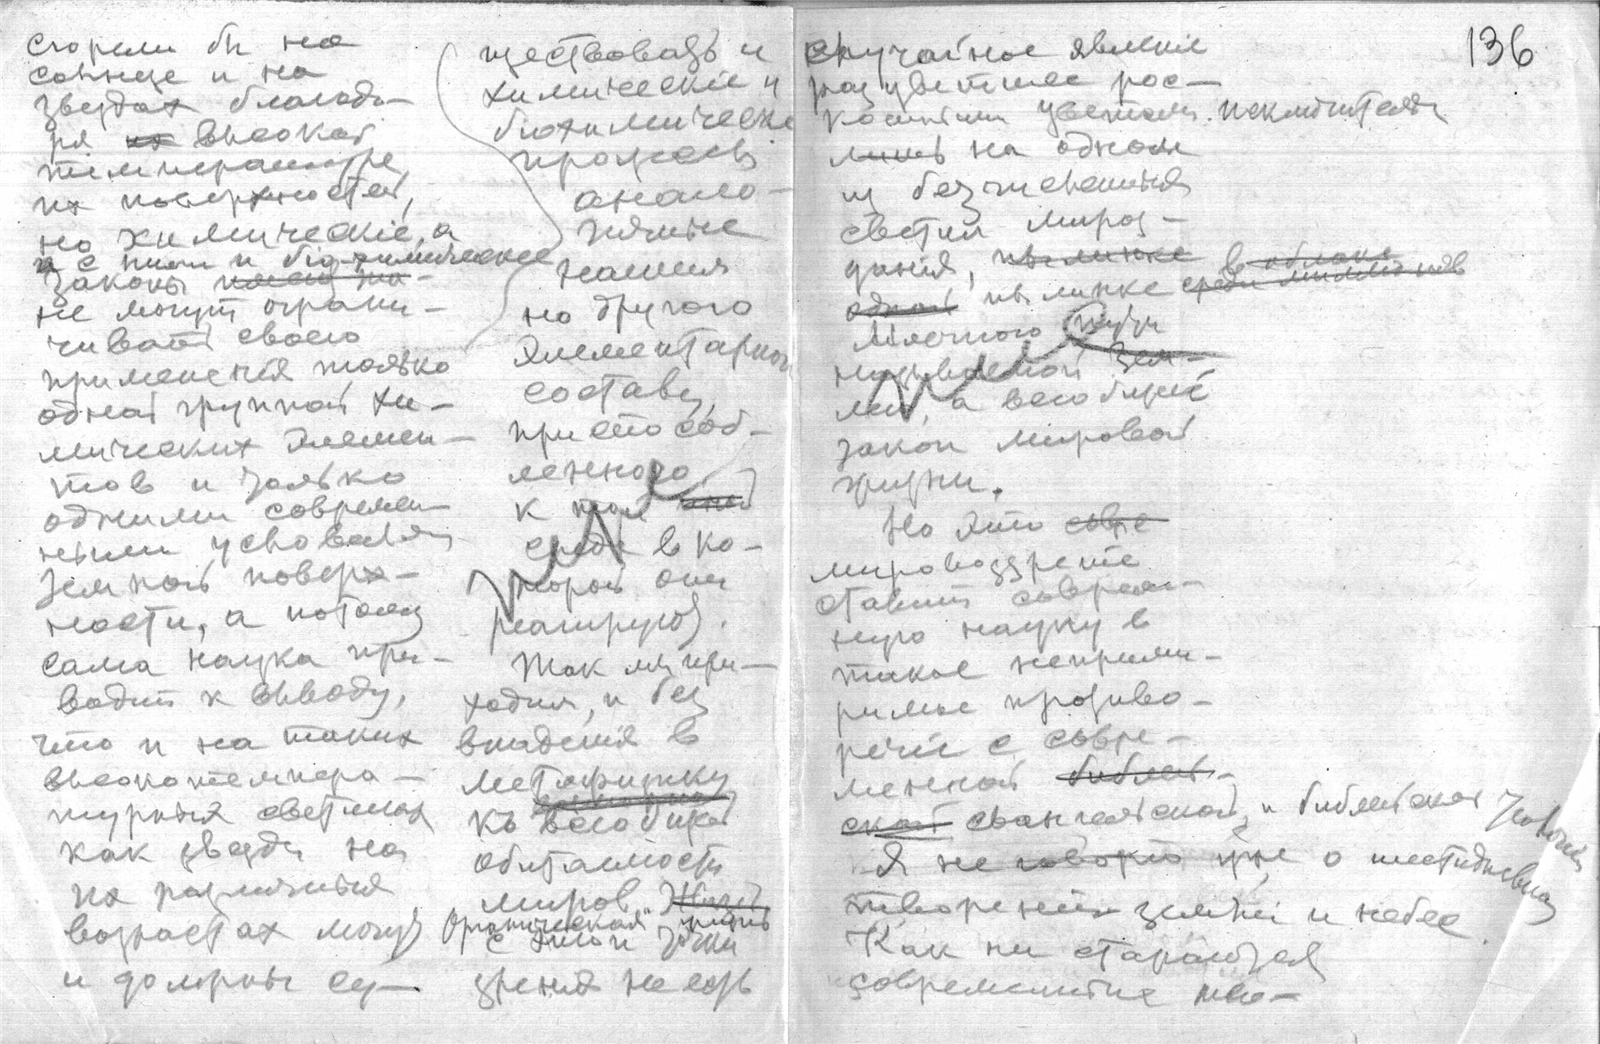 сгорели бы на
солнце и на
звездах благода-
ря их высокой
температуре
их поверхностей,
но химическіе, а
и с ними и біохимическіе
законы
не могут ограни-
чивать своего
примененія только
одной группой хи-
мических элемен-
тов и только
одними современ-
ными условіями
земной поверх-
ности, а потому
сама наука при-
водит к выводу,
что и на таких
высокотемпера-
турных светилах
как звезды на
их различных
возрастах могут
и должны су-
ществовать и
химическіе и
біохимическіе
процессы
анало-
гичные
нашим
но другого
элементарного
состава,
приспособ-
ленного
к той
среде в ко-
торой они
реагируют.
Так мы при-
ходим, и без
впаденія в
метафизику
къ всеобщей
обитаемости
миров. Жизнь
Органическая жизнь
с этой точки
зренія не есть
136
случайное явленіе
разцветшее рос-
кошным цветом исключительно
лишь на одном
из безчисленных
светил мироз-
данія, пылинке в облаке
одной пылинке среди миллионов
Млечного пути
называемой Зем-
лей, а всеобщій
закон мировой
жизни.
Но это совре
мировоззреніе
ставит современ-
ную науку в
такое неприми-
римое противо-
речіе с совре-
менной библей-
ской евангельской, и библейской
Я не говорю уже о шестидневном
творении земли и неба.
Как ни стараются
современные